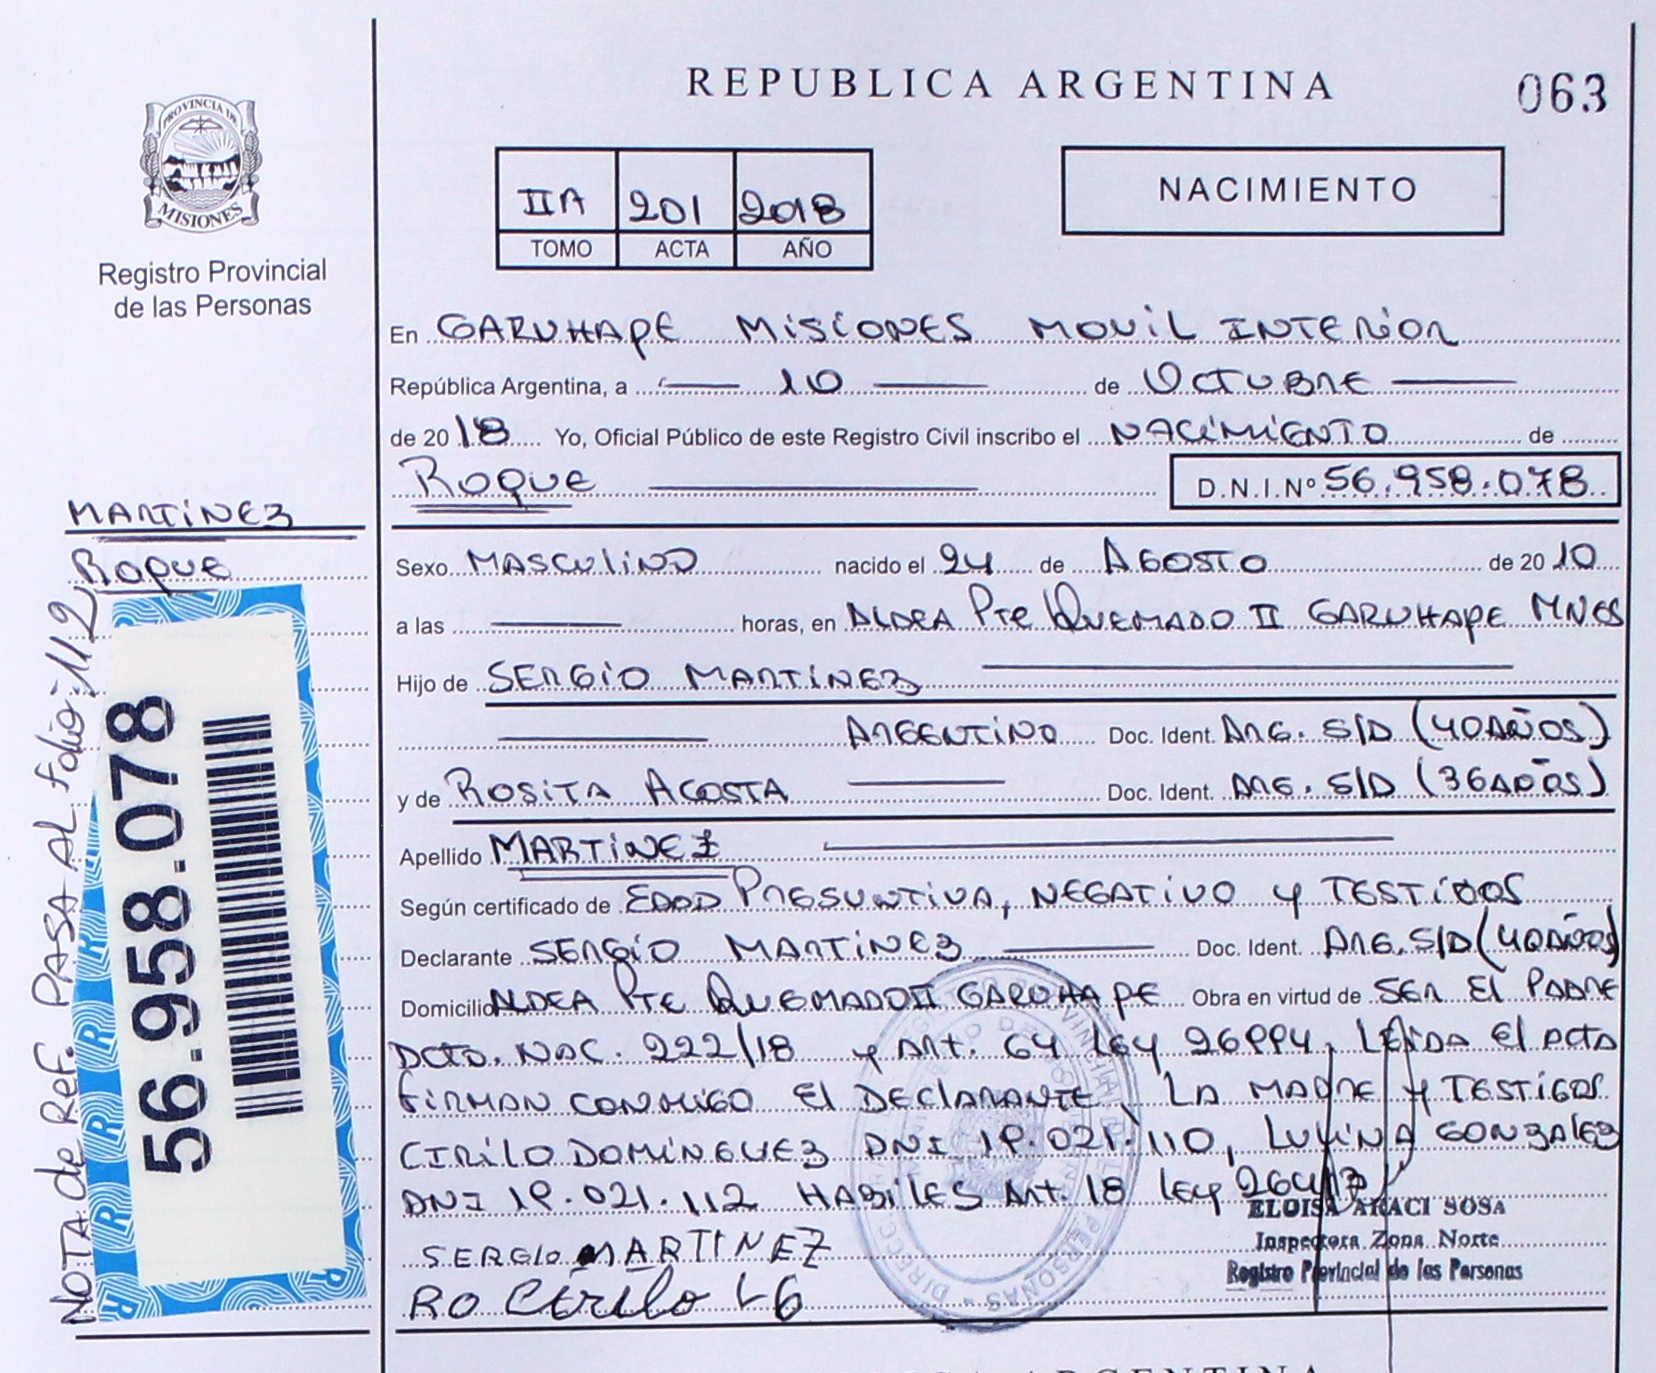 REPUBLICA ARGENTINA
063
PROVINCIA DE
MISIONES
Registro Provincial
de las Personas
IIA 201 2018
TOMO ACTA AÑO
NACIMIENTO
En GARUHAPE MISIONES MOVIL INTERIOR
República Argentina, a 10 de OCTUBRE
de 2018 Yo, Oficial Público de este Registro Civil inscribo el NACIMIENTO de
ROQUE D.N.I.Nº 56.958.078
MARTINEZ
ROQUE
NOTA de Ref. PASA AL folio: 112
56.958.078
Sexo MASCULINO nacido el 24 de AGOSTO de 2010
a las horas, en ALDEA Pte QUEMADO II GARUHAPE MNES
Hijo de SERGIO MARTINEZ
ARGENTINO Doc. Ident. ARG. S/D (40 AÑOS)
y de ROSITA ACOSTA Doc. Ident. ARG. S/D (36 AÑOS)
Apellido MARTINEZ
Según certificado de EDAD PRESUNTIVA, NEGATIVO Y TESTIGOS
Declarante SERGIO MARTINEZ Doc. Ident. ARG. S/D (40 AÑOS)
Domicilio ALDEA Pte QUEMADO II GARUHAPE Obra en virtud de SER El PADRE
DCTO. NAC. 222/18 y ART. 64 LEY 26994, LEIDA El ACTA
FIRMAN CONMIGO El DECLARANTE, LA MADRE Y TESTIGOS
CIRILO DOMINGUEZ DNI 19.021.110, LUCINA GONZALEZ
DNI 19.021.112 HABILES ART. 18 LEY 26413
ELOISA ARACI SOSA
Inspectora Zona Norte
Registro Provincial de las Personas
SERGIO MARTINEZ
RO Cirilo LG